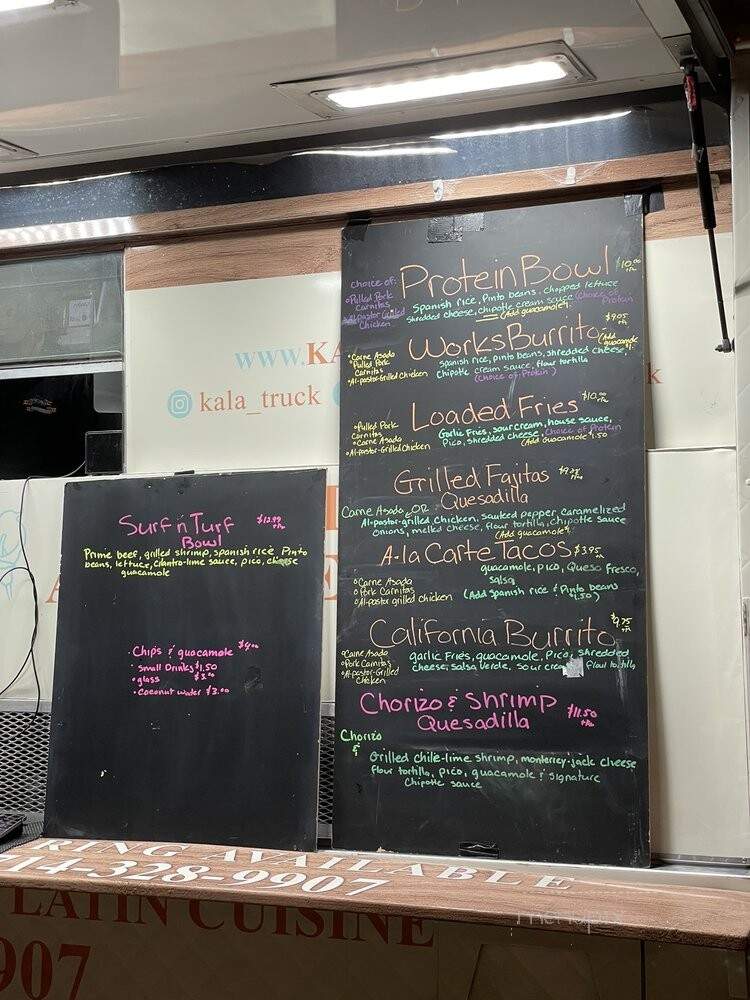 WWW.KA
kala_truck
k
Surf n Turf $12.99
+tax
Bowl
Prime beef, grilled shrimp, spanish rice Pinto
beans, lettuce, cilantro-lime sauce, pico, cheese
guacamole
• Chips & guacamole $4.00
• small Drinks $1.50
• glass $3.00
• coconut water $3.00
Protein Bowl $10.00
+tax
Choice of:
• Pulled Pork
Carnitas
Al-pastor Grilled
Chicken
Spanish rice, Pinto beans, chopped lettuce
shredded cheese, chipotle cream sauce (Choice of
Protein
(Add guacamole $1.
Works Burrito $9.05
(Add
guacamole
$1.
• Carne Asada
• Pulled Pork
Carnitas
• Al-pastor-Grilled Chicken
Spanish rice, pinto beans, shredded cheese,
Chipotle cream sauce, flour tortilla
(Choice of: Protein)
Loaded Fries $10.00
+tax
• Pulled Pork
Carnitas
• Carne Asada
• Al-pastor-Grilled Chicken
Garlic Fries, sour cream, house sauce,
Pico, shredded cheese, Choice of Protein
(Add Guacamole $1.50
Grilled Fajitas
+tax
Quesadilla
Carne Asada OR
Al-pastor-grilled Chicken, sauteed pepper, caramelized
onions, melted cheese, flour tortilla, chipotle sauce
(Add guacamole $1
A-la Carte Tacos $3.95
• Carne Asada
• Pork Carnitas
• Al-pastor grilled chicken
guacamole, pico, Queso fresco,
salsa
(Add spanish rice & Pinto beans
$1.50)
California Burrito $9.75
+tax
• Carne Asada
• Pork Carnitas
• Al-pastor-Grilled
Chicken
garlic Fries, guacamole, Pico, shredded
cheese, Salsa Verde, Sour cream flour tortilla
Chorizo & Shrimp $11.50
+tax
Quesadilla
Chorizo
&
Grilled chile-lime shrimp, monterrey-jack cheese
flour tortilla, pico, guacamole & signature
Chipotle sauce
RING AVAILABLE
714-328-9907
LATIN CUISINE
907